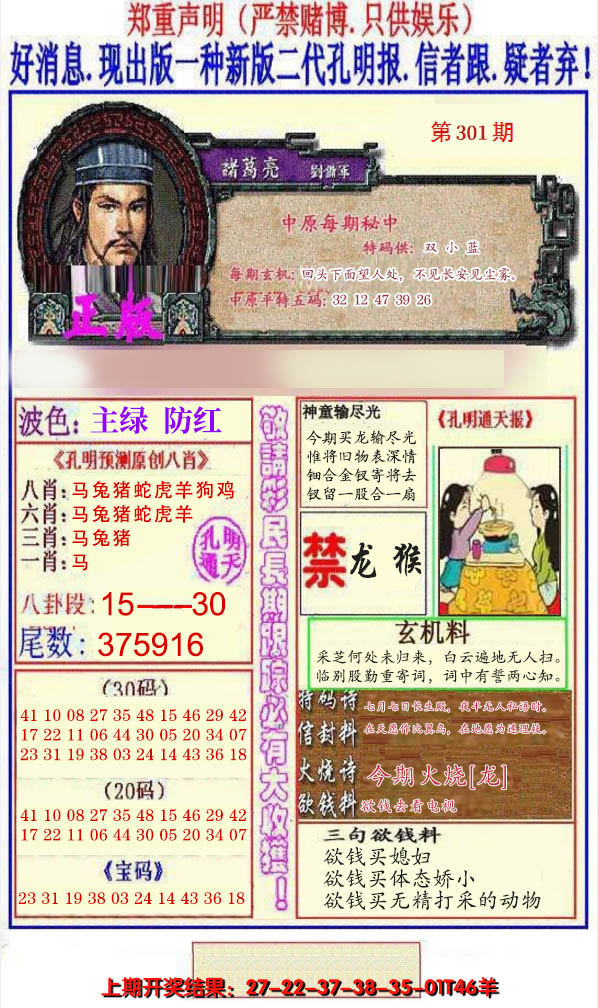 郑重声明（严禁赌博.只供娱乐）
好消息.现出版一种新版二代孔明报.信者跟.疑者弃！
第301期
諸葛亮
中原每期秘中
特码供：双 小 蓝
每期玄机：回头下面望人处，不见长安见尘雾。
中原平特五码：32 12 47 39 26
正版
波色：主绿 防红
《孔明预测原创八肖》
八肖：马兔猪蛇虎羊狗鸡
六肖：马兔猪蛇虎羊
三肖：马兔猪
一肖：马
孔明
通天
八卦段：15——30
尾数：375916
（30码）
41 10 08 27 35 48 15 46 29 42
17 22 11 06 44 30 05 20 34 07
23 31 19 38 03 24 14 43 36 18
（20码）
41 10 08 27 35 48 15 46 29 42
17 22 11 06 44 30 05 20 34 07
《宝码》
23 31 19 38 03 24 14 43 36 18
敬請彩民長期跟踪必有大收獲！
神童输尽光
今期买龙输尽光
惟将旧物表深情
钿合金钗寄将去
钗留一股合一扇
《孔明通天报》
禁龙 猴
玄机料
采芝何处未归来，白云遍地无人扫。
临别殷勤重寄词，词中有誓两心知。
特码诗
七月七日长生殿，夜半无人私语时。
信封料
在天愿作比翼鸟，在地愿为连理枝。
火烧诗
今期火烧[龙]
欲钱料
欲钱去看电视
三句欲钱料
欲钱买媳妇
欲钱买体态娇小
欲钱买无精打采的动物
上期开奖结果：27-22-37-38-35-01T46羊